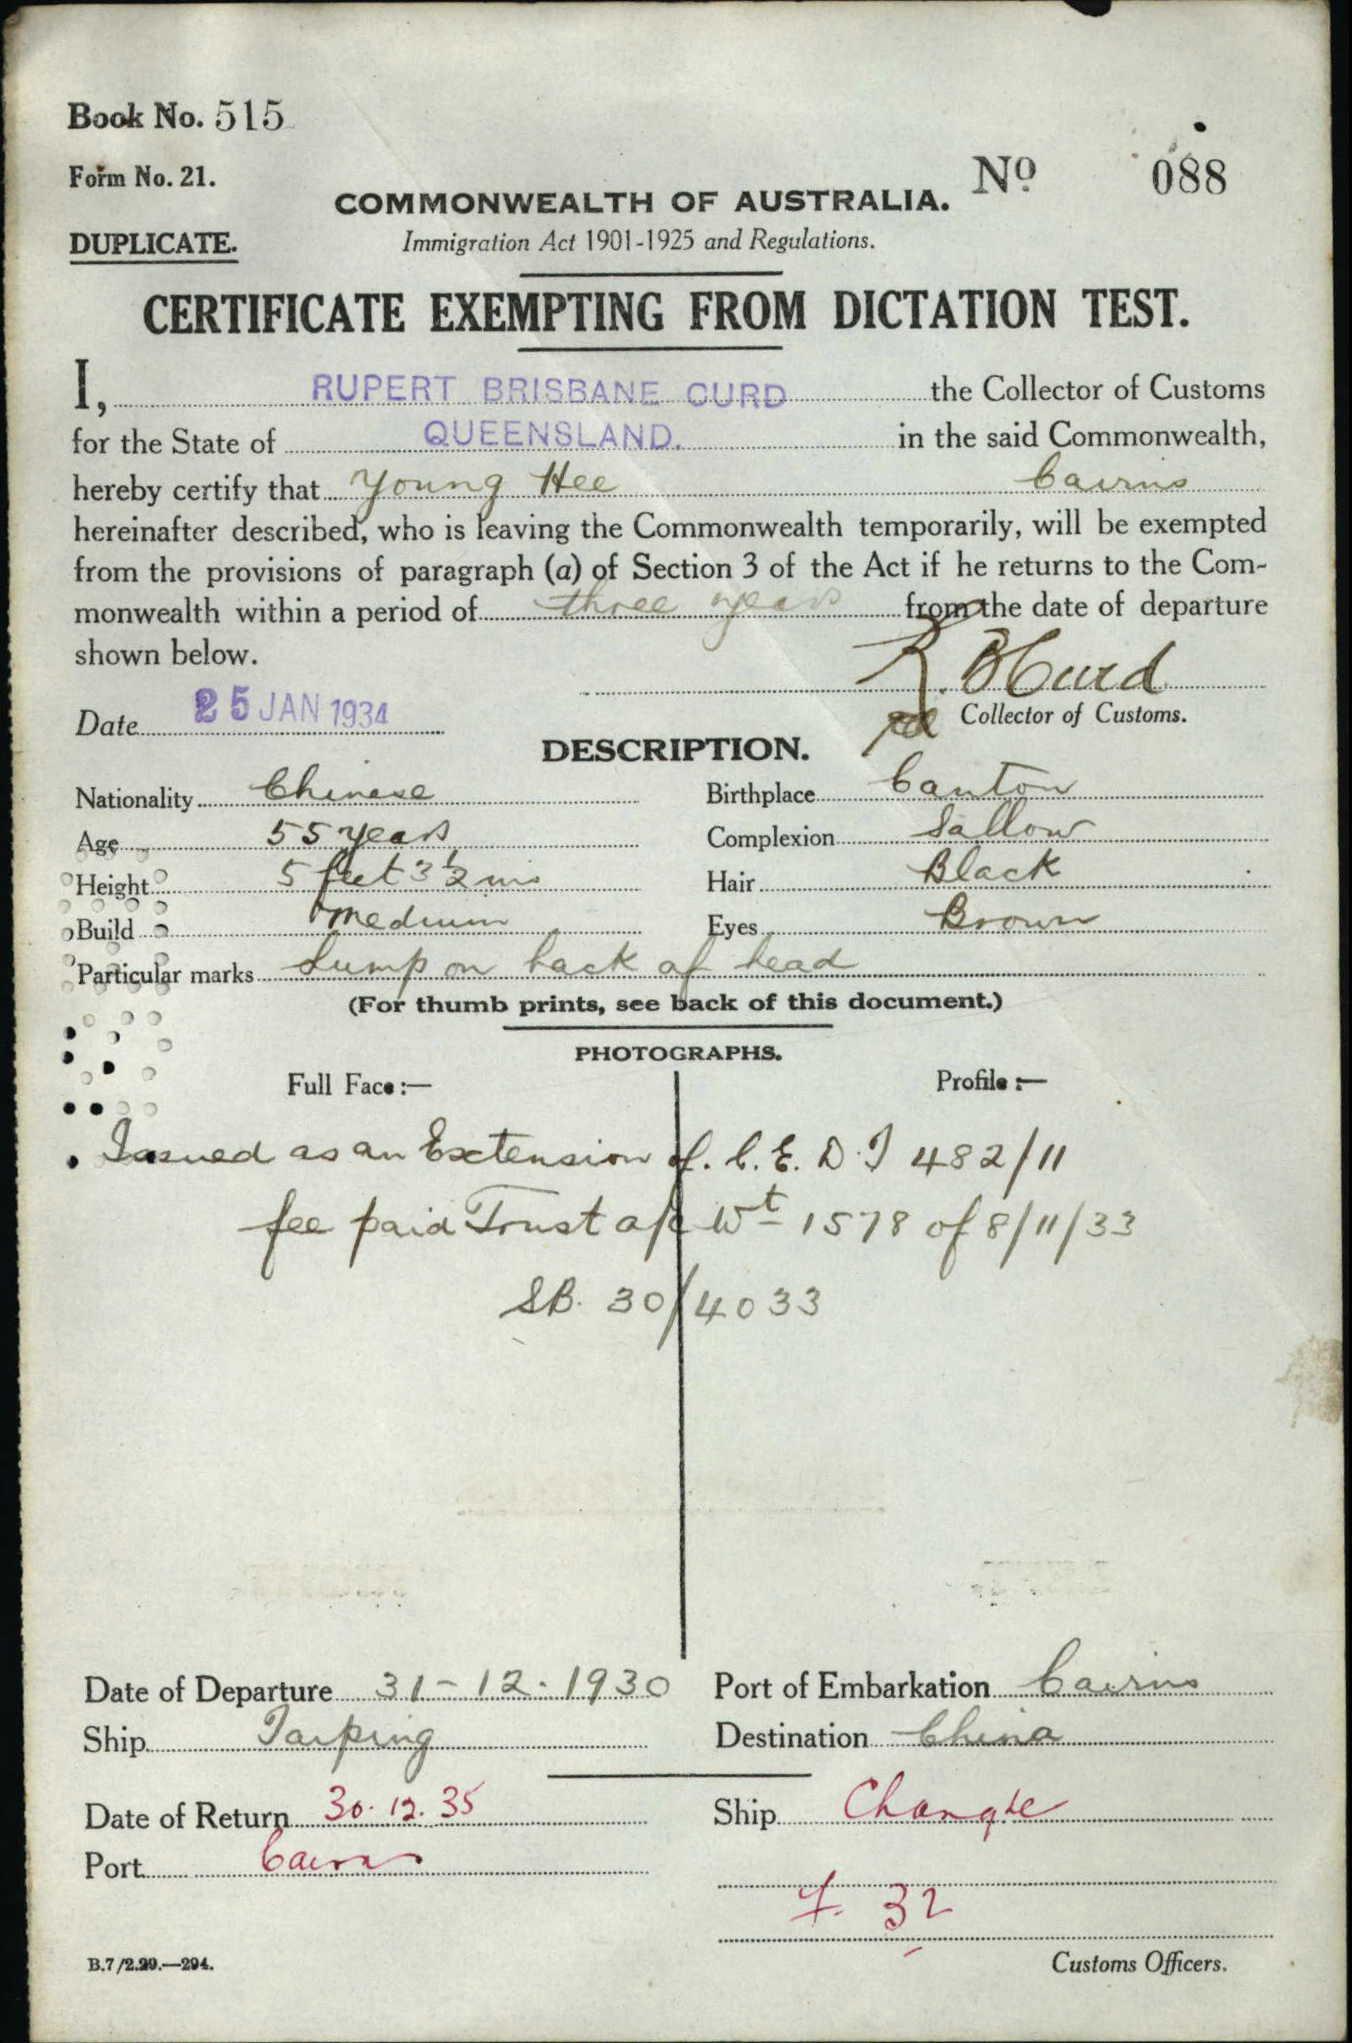 Book No. 515
Form No. 21.
Nº 088
COMMONWEALTH OF AUSTRALIA.
DUPLICATE.
Immigration Act 1901-1925 and Regulations.
CERTIFICATE EXEMPTING FROM DICTATION TEST.
I, RUPERT BRISBANE CURD the Collector of Customs
for the State of QUEENSLAND. in the said Commonwealth,
hereby certify that Young Hee Cairns
hereinafter described, who is leaving the Commonwealth temporarily, will be exempted
from the provisions of paragraph (a) of Section 3 of the Act if he returns to the Com-
monwealth within a period of three years from the date of departure
shown below.
R. B Curd
Date 25 JAN 1934
Collector of Customs.
DESCRIPTION.
Nationality Chinese Birthplace Canton
Age 55 years Complexion Sallow
Height 5 feet 3½ ins Hair Black
Build Medium Eyes Brown
Particular marks Lump on back of head
(For thumb prints, see back of this document.)
PHOTOGRAPHS.
Full Face :— Profile :—
Issued as an Extension of. C. E. D. T 482/11
fee paid Trust a/c Wt 1578 of 8/11/33
SB. 30/4033
Date of Departure 31-12-1930 Port of Embarkation Cairns
Ship Taiping Destination China
Date of Return 30.12.35 Ship Changte
Port Cairns
32
B.7/2.29.—294.
Customs Officers.